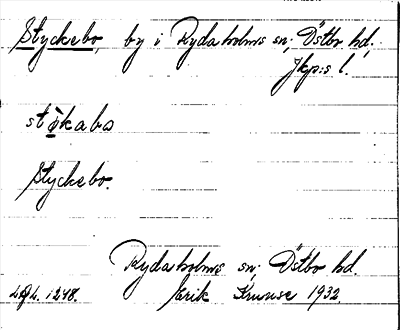 Styckebo, by i Rydaholms sn; Östbo hd,
Jkp:s l.
støkabo
Styckebo.
Rydaholms sn; Östbo hd.
Erik Kruuse 1932.